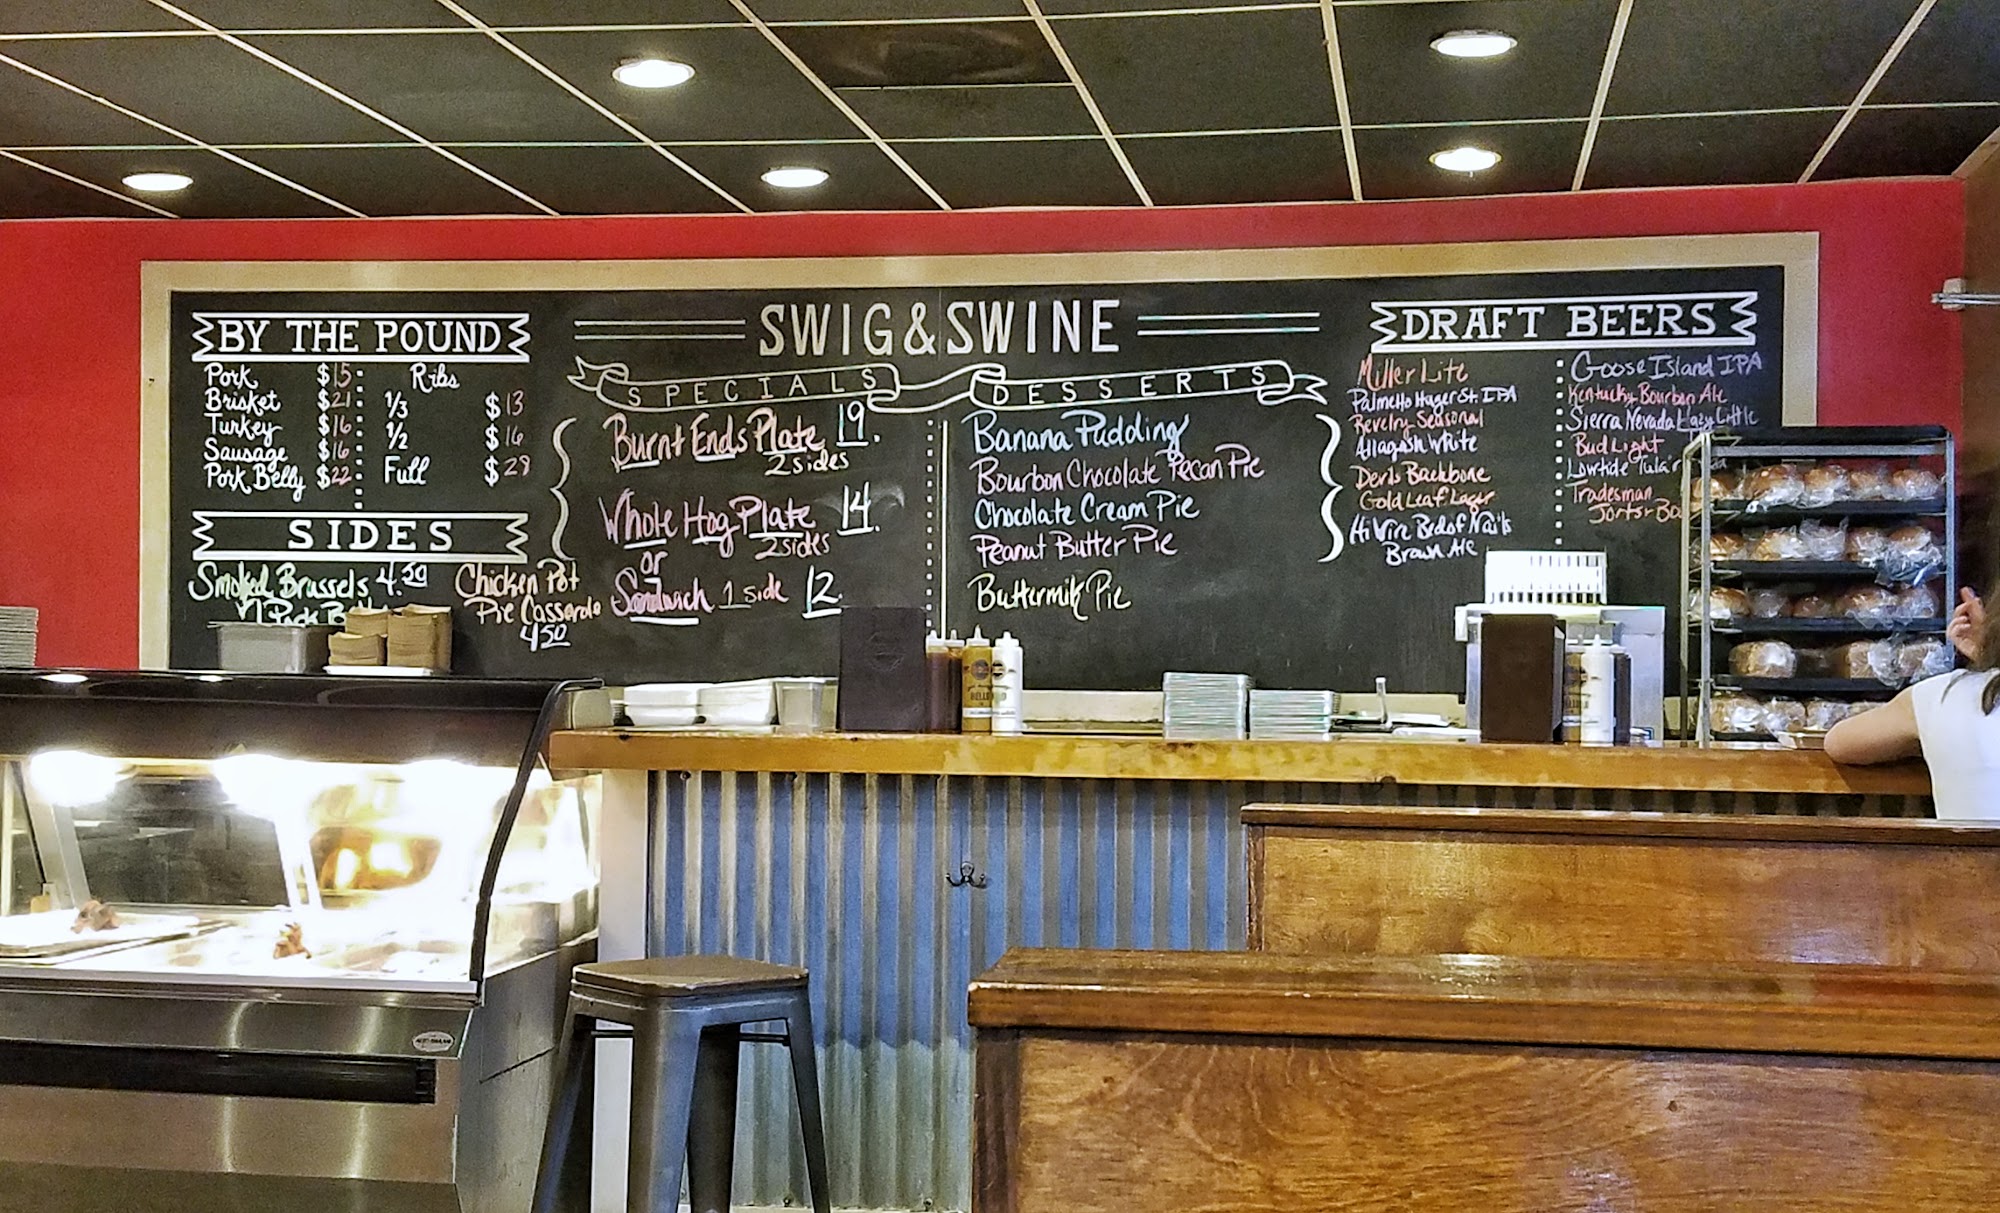 SWIG & SWINE
BY THE POUND
Pork $15
Brisket $21
Turkey $16
Sausage $16
Pork Belly $22
Ribs
1/3 $13
1/2 $16
Full $28
SIDES
Smoked Brussels 4.50
w/ Pork
Chicken Pot
Pie Casserole
4.50
SPECIALS
Burnt Ends Plate 19.
2 sides
Whole Hog Plate 14.
2 sides
or
Sandwich 1 side 12
DESSERTS
Banana Pudding
Bourbon Chocolate Pecan Pie
Chocolate Cream Pie
Peanut Butter Pie
Buttermilk Pie
DRAFT BEERS
Miller Lite
Palmetto Huger St. IPA
Revelry Seasonal
Allagash White
Devils Backbone
Gold Leaf Lager
Hi Wire Bed of Nails
Brown Ale
Goose Island IPA
Kentucky Bourbon Ale
Sierra Nevada Hazy Little
Bud Light
Lowtide
Tradesman